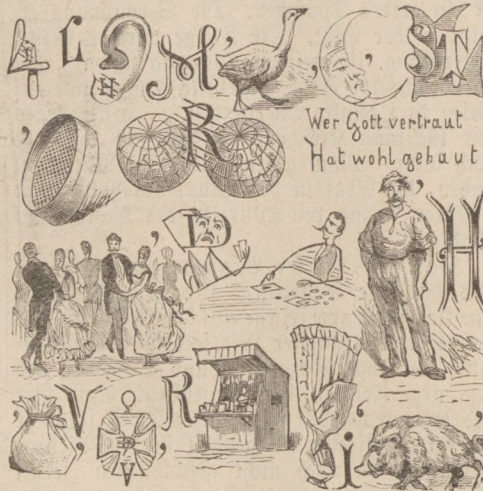 4 L H M' ' ' ST
' R
Wer Gott vertraut
Hat wohl gebaut
' D ' H
' V ' ' R i ' '